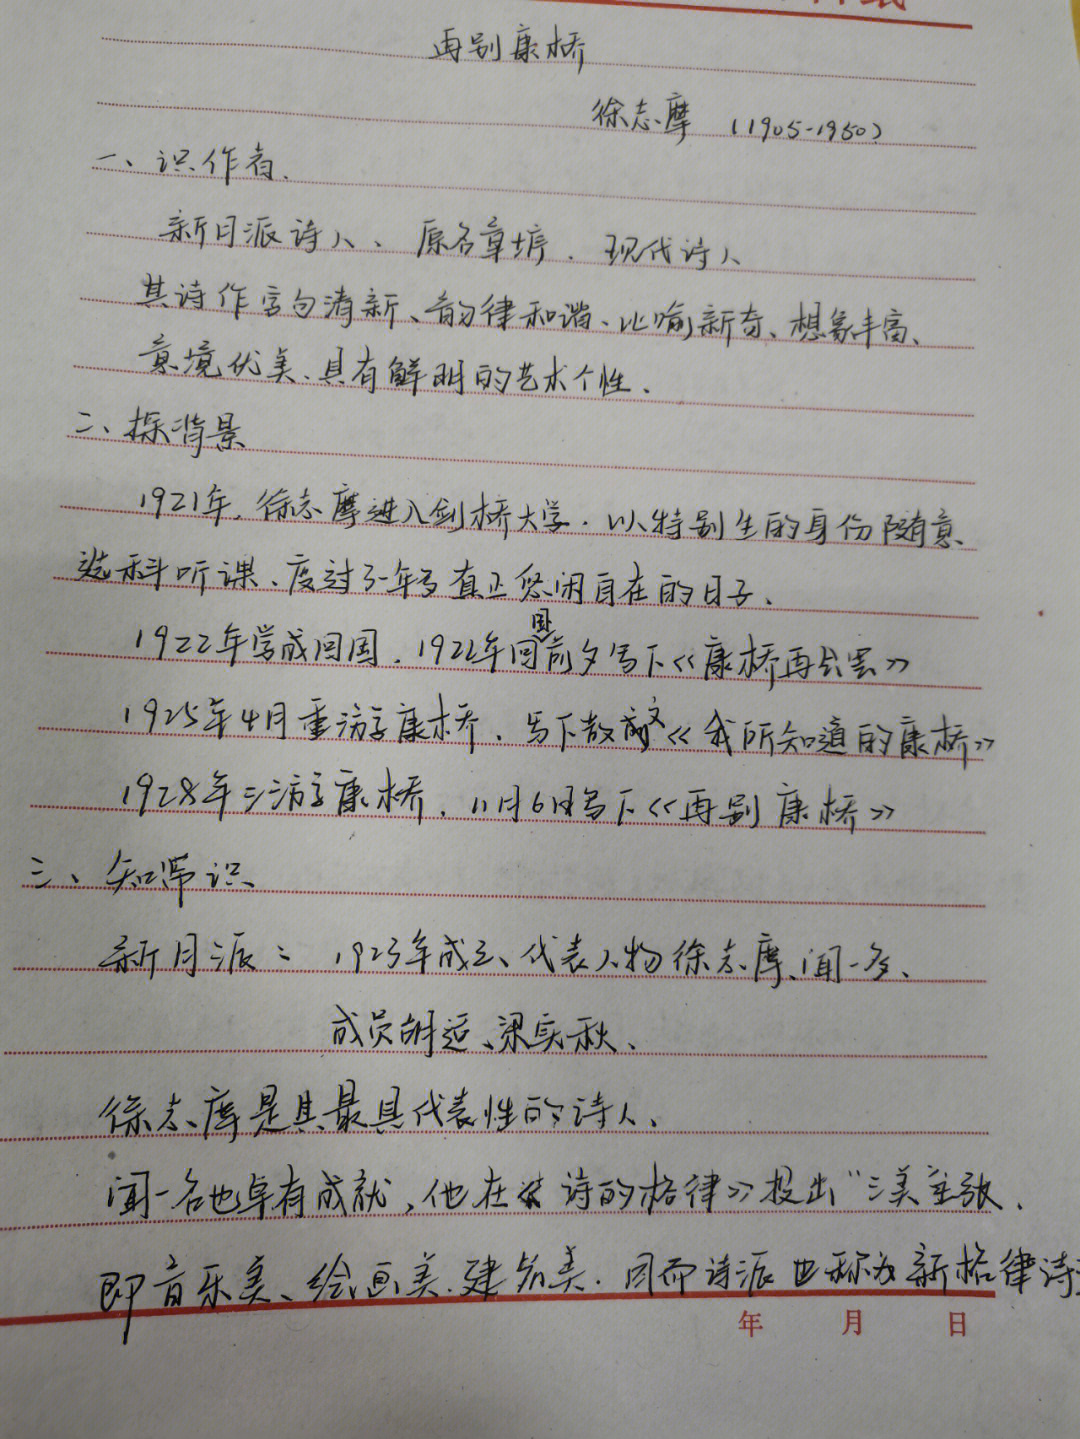 再别康桥
徐志摩 (1905-1950)
一、识作者.
新月派诗人、原名章垿.现代诗人
其诗作字句清新、韵律和谐、比喻新奇、想象丰富、
意境优美、具有鲜明的艺术个性.
二、探背景
1921年,徐志摩进入剑桥大学.以特别生的身份随意
选科听课、度过了一年多真正悠闲自在的日子.
1922年学成回国,1922年回国前夕写下《康桥再会罢》
1925年4月重游康桥,写下散文《我所知道的康桥》
1928年三游康桥,11月6日写下《再别康桥》
三、知常识
新月派: 1923年成立、代表人物徐志摩、闻一多、
成员胡适、梁实秋、
徐志摩是其最具代表性的诗人、
闻一多也卓有成就,他在《诗的格律》提出“三美主张、
即音乐美、绘画美、建筑美.因而诗派也称为新格律诗
年 月 日